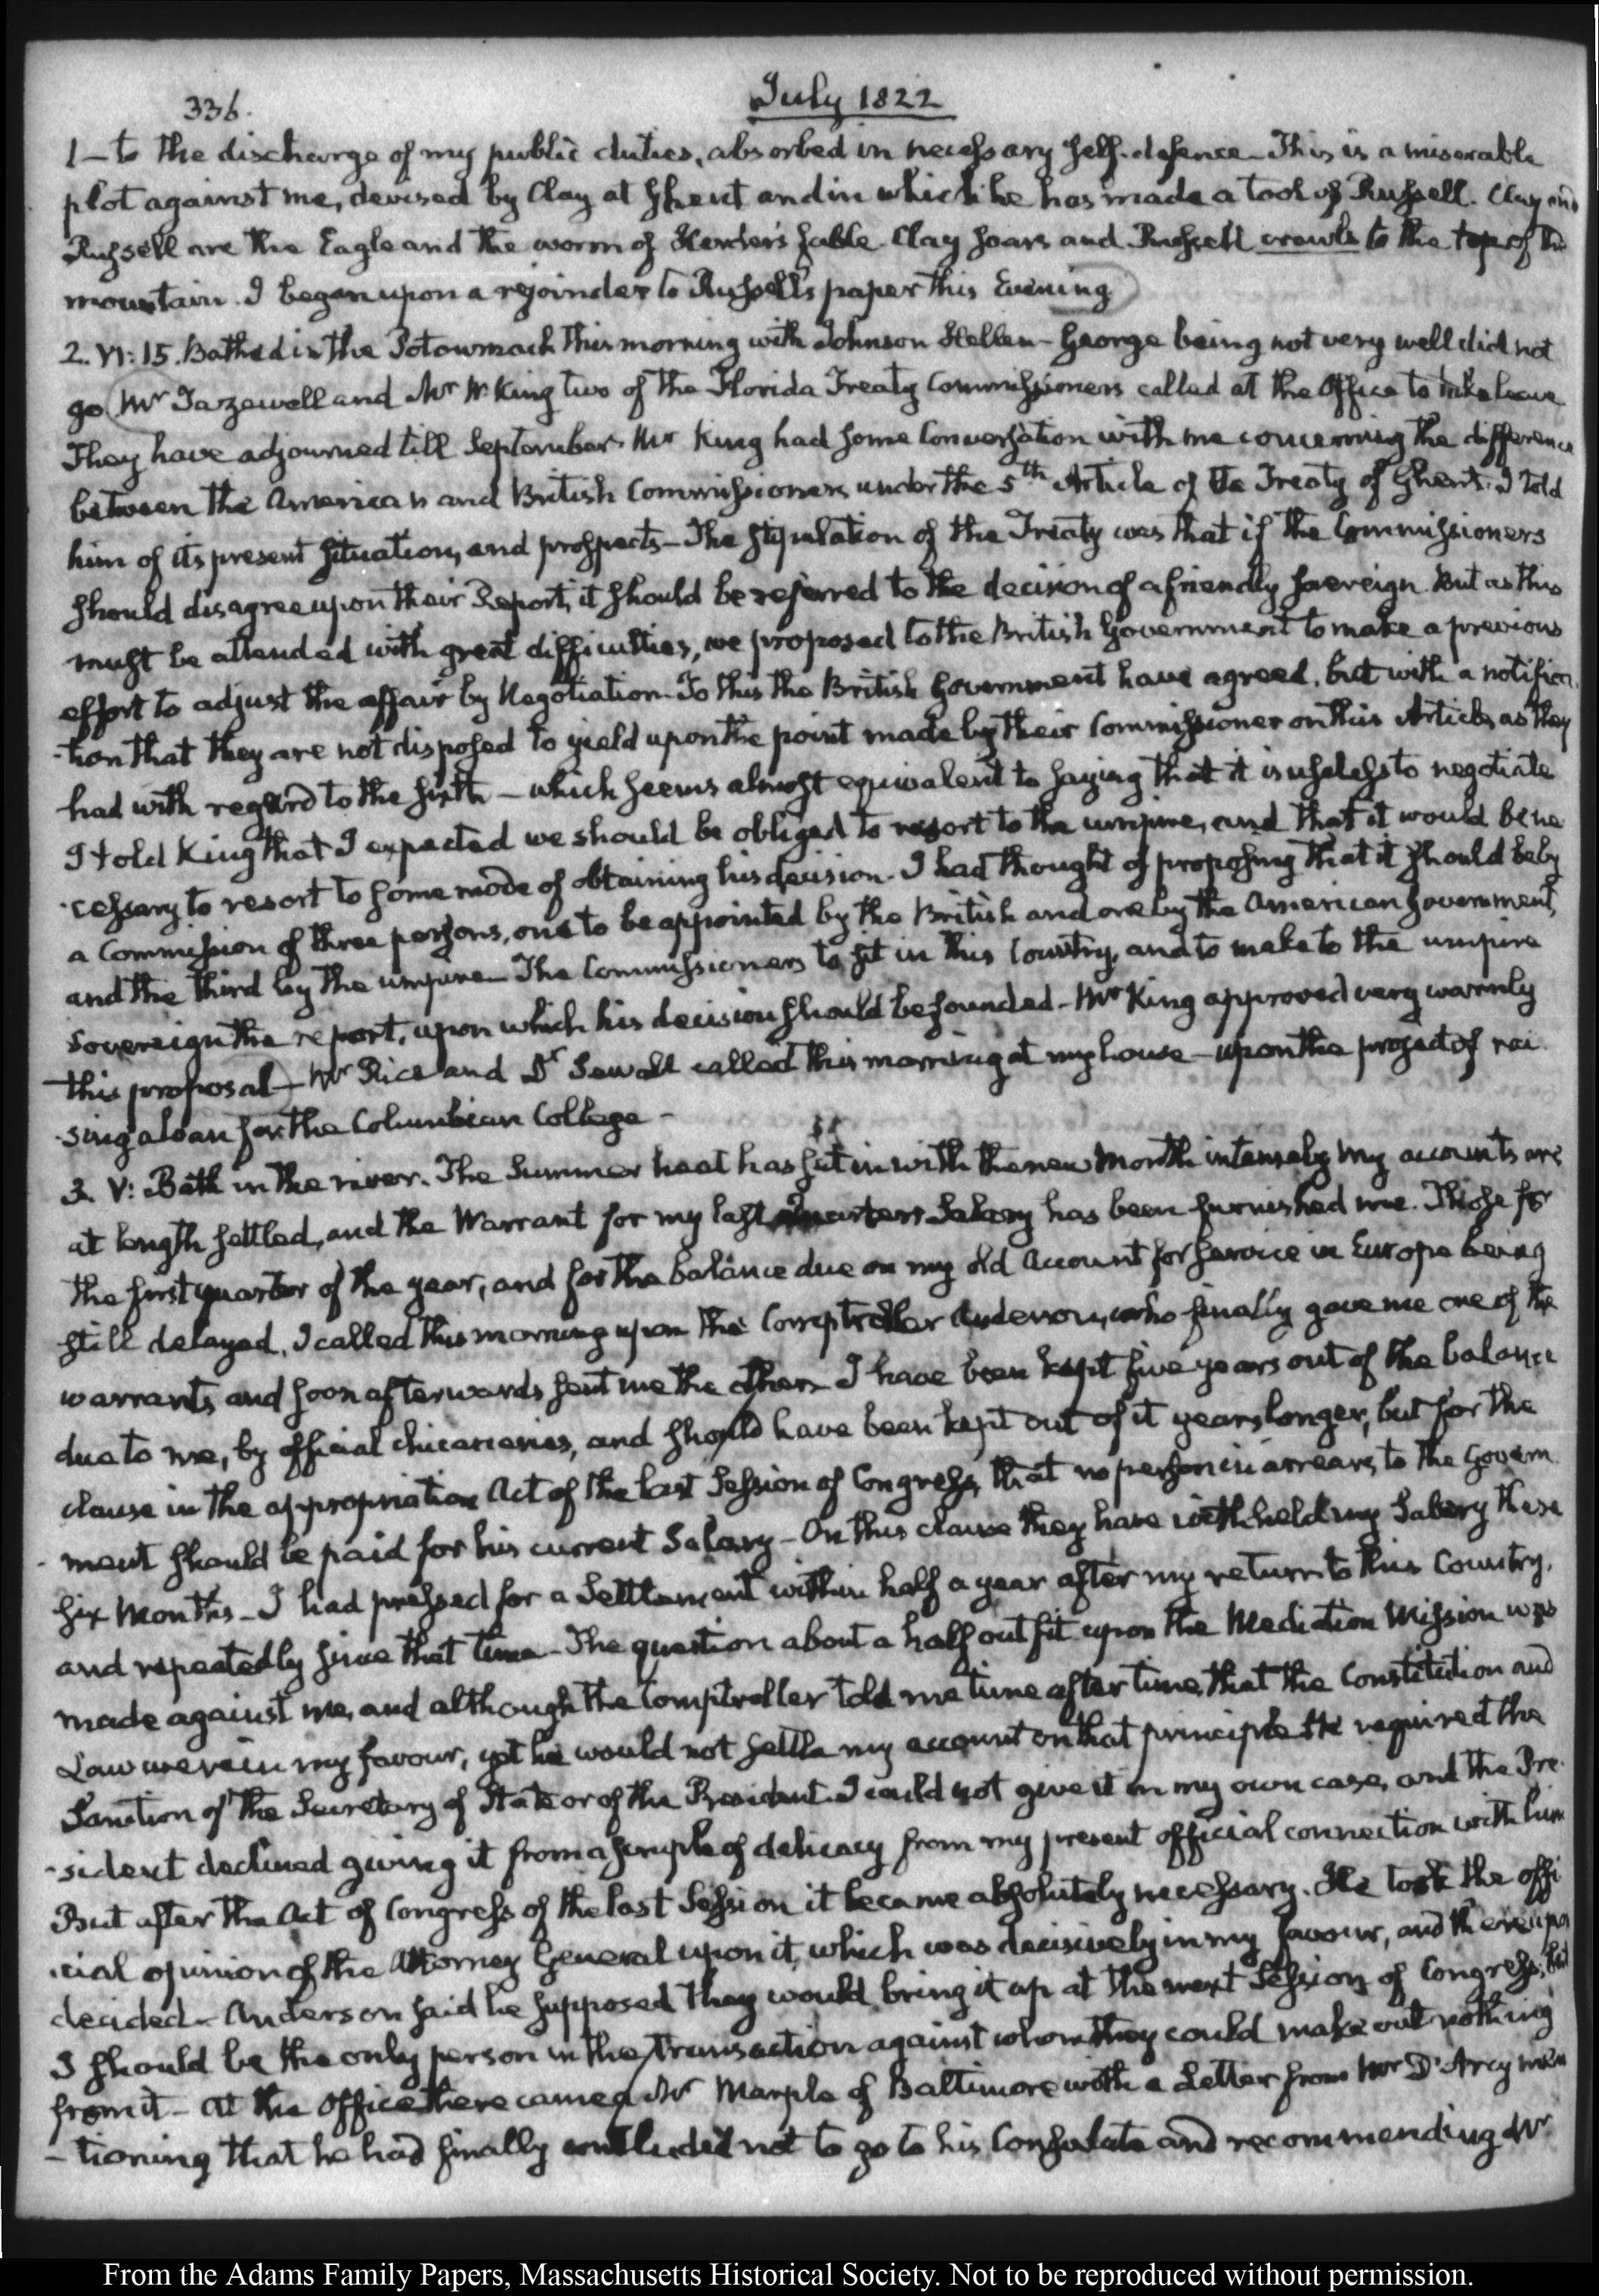 336.
July 1822
1 – to the discharge of my public duties, absorbed in necessary self-defence – This is a miserable
plot against me, devised by Clay at Ghent and in which he has made a tool of Russell. Clay and
Russell are the Eagle and the worm of Herder's fable. Clay soars and Russell crawls to the top of the
mountain. I began upon a rejoinder to Russell's paper this Evening
2. VI: 15. Bathed in the Potowmack this morning with Johnson Hellen – George being not very well did not
go Mr Tazewell and Mr W. King two of the Florida Treaty Commissioners called at the Office to take leave
They have adjourned till September. Mr King had some Conversation with me concerning the difference
between the American and British Commissioners under the 5th Article of the Treaty of Ghent. I told
him of its present situation, and prospects – The stipulation of the Treaty was that if the Commissioners
should disagree upon their Report, it should be referred to the decision of a friendly sovereign. But as this
must be attended with great difficulties, we proposed to the British Government to make a previous
effort to adjust the affair by Negotiation. To this the British Government have agreed, but with a notifica
-tion that they are not disposed to yield upon the point made by their Commissioner on this Article, as they
had with regard to the sixth – which seems almost equivalent to saying that it is useless to negotiate
I told King that I expected we should be obliged to resort to the umpire, and that it would be ne
-cessary to resort to some mode of obtaining his decision. I had thought of proposing that it should be by
a Commission of three persons, one to be appointed by the British and one by the American Government,
and the third by the umpire – The Commissioners to sit in this Country, and to make to the umpire
Sovereign the report, upon which his decision should be founded – Mr King approved very warmly
this proposal – Mr Rice and Dr Sewall called this morning at my house – upon the project of rai
-sing a loan for the Columbian College –
3. V: Bath in the river. The Summer heat has set in with the new Month intensely My accounts are
at length settled, and the Warrant for my last quarters Salary has been furnished me. Those for
the first quarter of the year, and for the balance due on my old Account for service in Europe being
still delayed, I called this morning upon the Comptroller Anderson, who finally gave me one of the
warrants and soon afterwards sent me the other – I have been kept five years out of the balance
due to me, by official chicaneries, and should have been kept out of it years longer, but for the
clause in the appropriation Act of the last Session of Congress, that no person in arrears to the Govern
-ment should be paid for his current Salary – On this clause they have withheld my Salary these
six Months – I had pressed for a Settlement within half a year after my return to this Country,
and repeatedly since that time – The question about a half outfit upon the Mediation Mission was
made against me, and although the Comptroller told me time after time, that the Constitution and
Law were in my favour, yet he would not settle my account on that principle. He required the
Sanction of the Secretary of State or of the President. I could not give it in my own case, and the Pre
-sident declined giving it from a scruple of delicacy from my present official connection with him
But after the Act of Congress of the last Session it became absolutely necessary. He took the offi
-cial opinion of the Attorney General upon it, which was decisively in my favour, and thereupon
decided – Anderson said he supposed they would bring it up at the next Session of Congress; but
I should be the only person in the transaction against whom they could make out nothing
from it – At the Office there came Mr Marple of Baltimore with a Letter from Mr D'Arcy men
-tioning that he had finally concluded not to go to his Consulate and recommending Mr
From the Adams Family Papers, Massachusetts Historical Society. Not to be reproduced without permission.